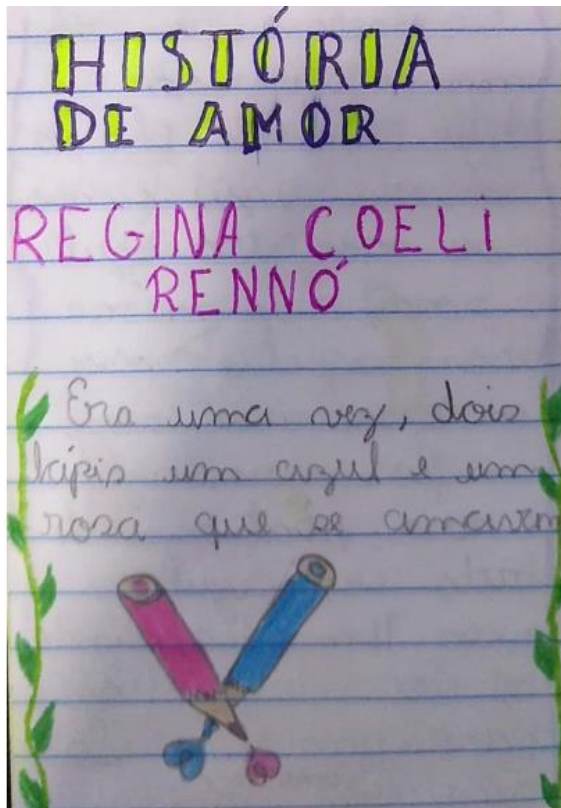 HISTÓRIA
DE AMOR
REGINA COELI
RENNÓ
Era uma vez, dois
lápis um azul e um
rosa que se amavam